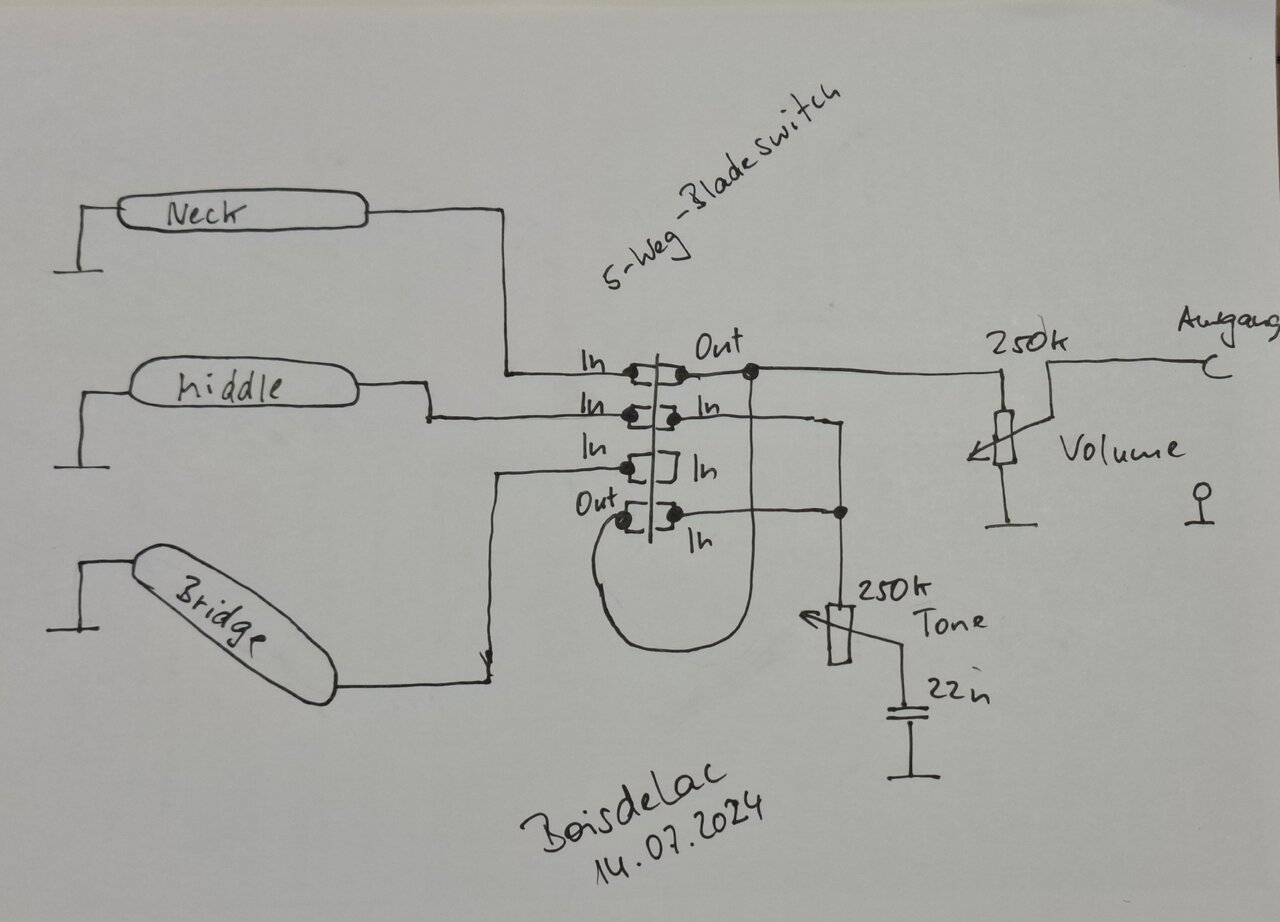 5-Weg-Bladeswitch
Neck
Middle
Bridge
In
Out
In
In
In
In
Out
In
250k
Ausgang
Volume
250k
Tone
22n
BoisdeLac
14.07.2024